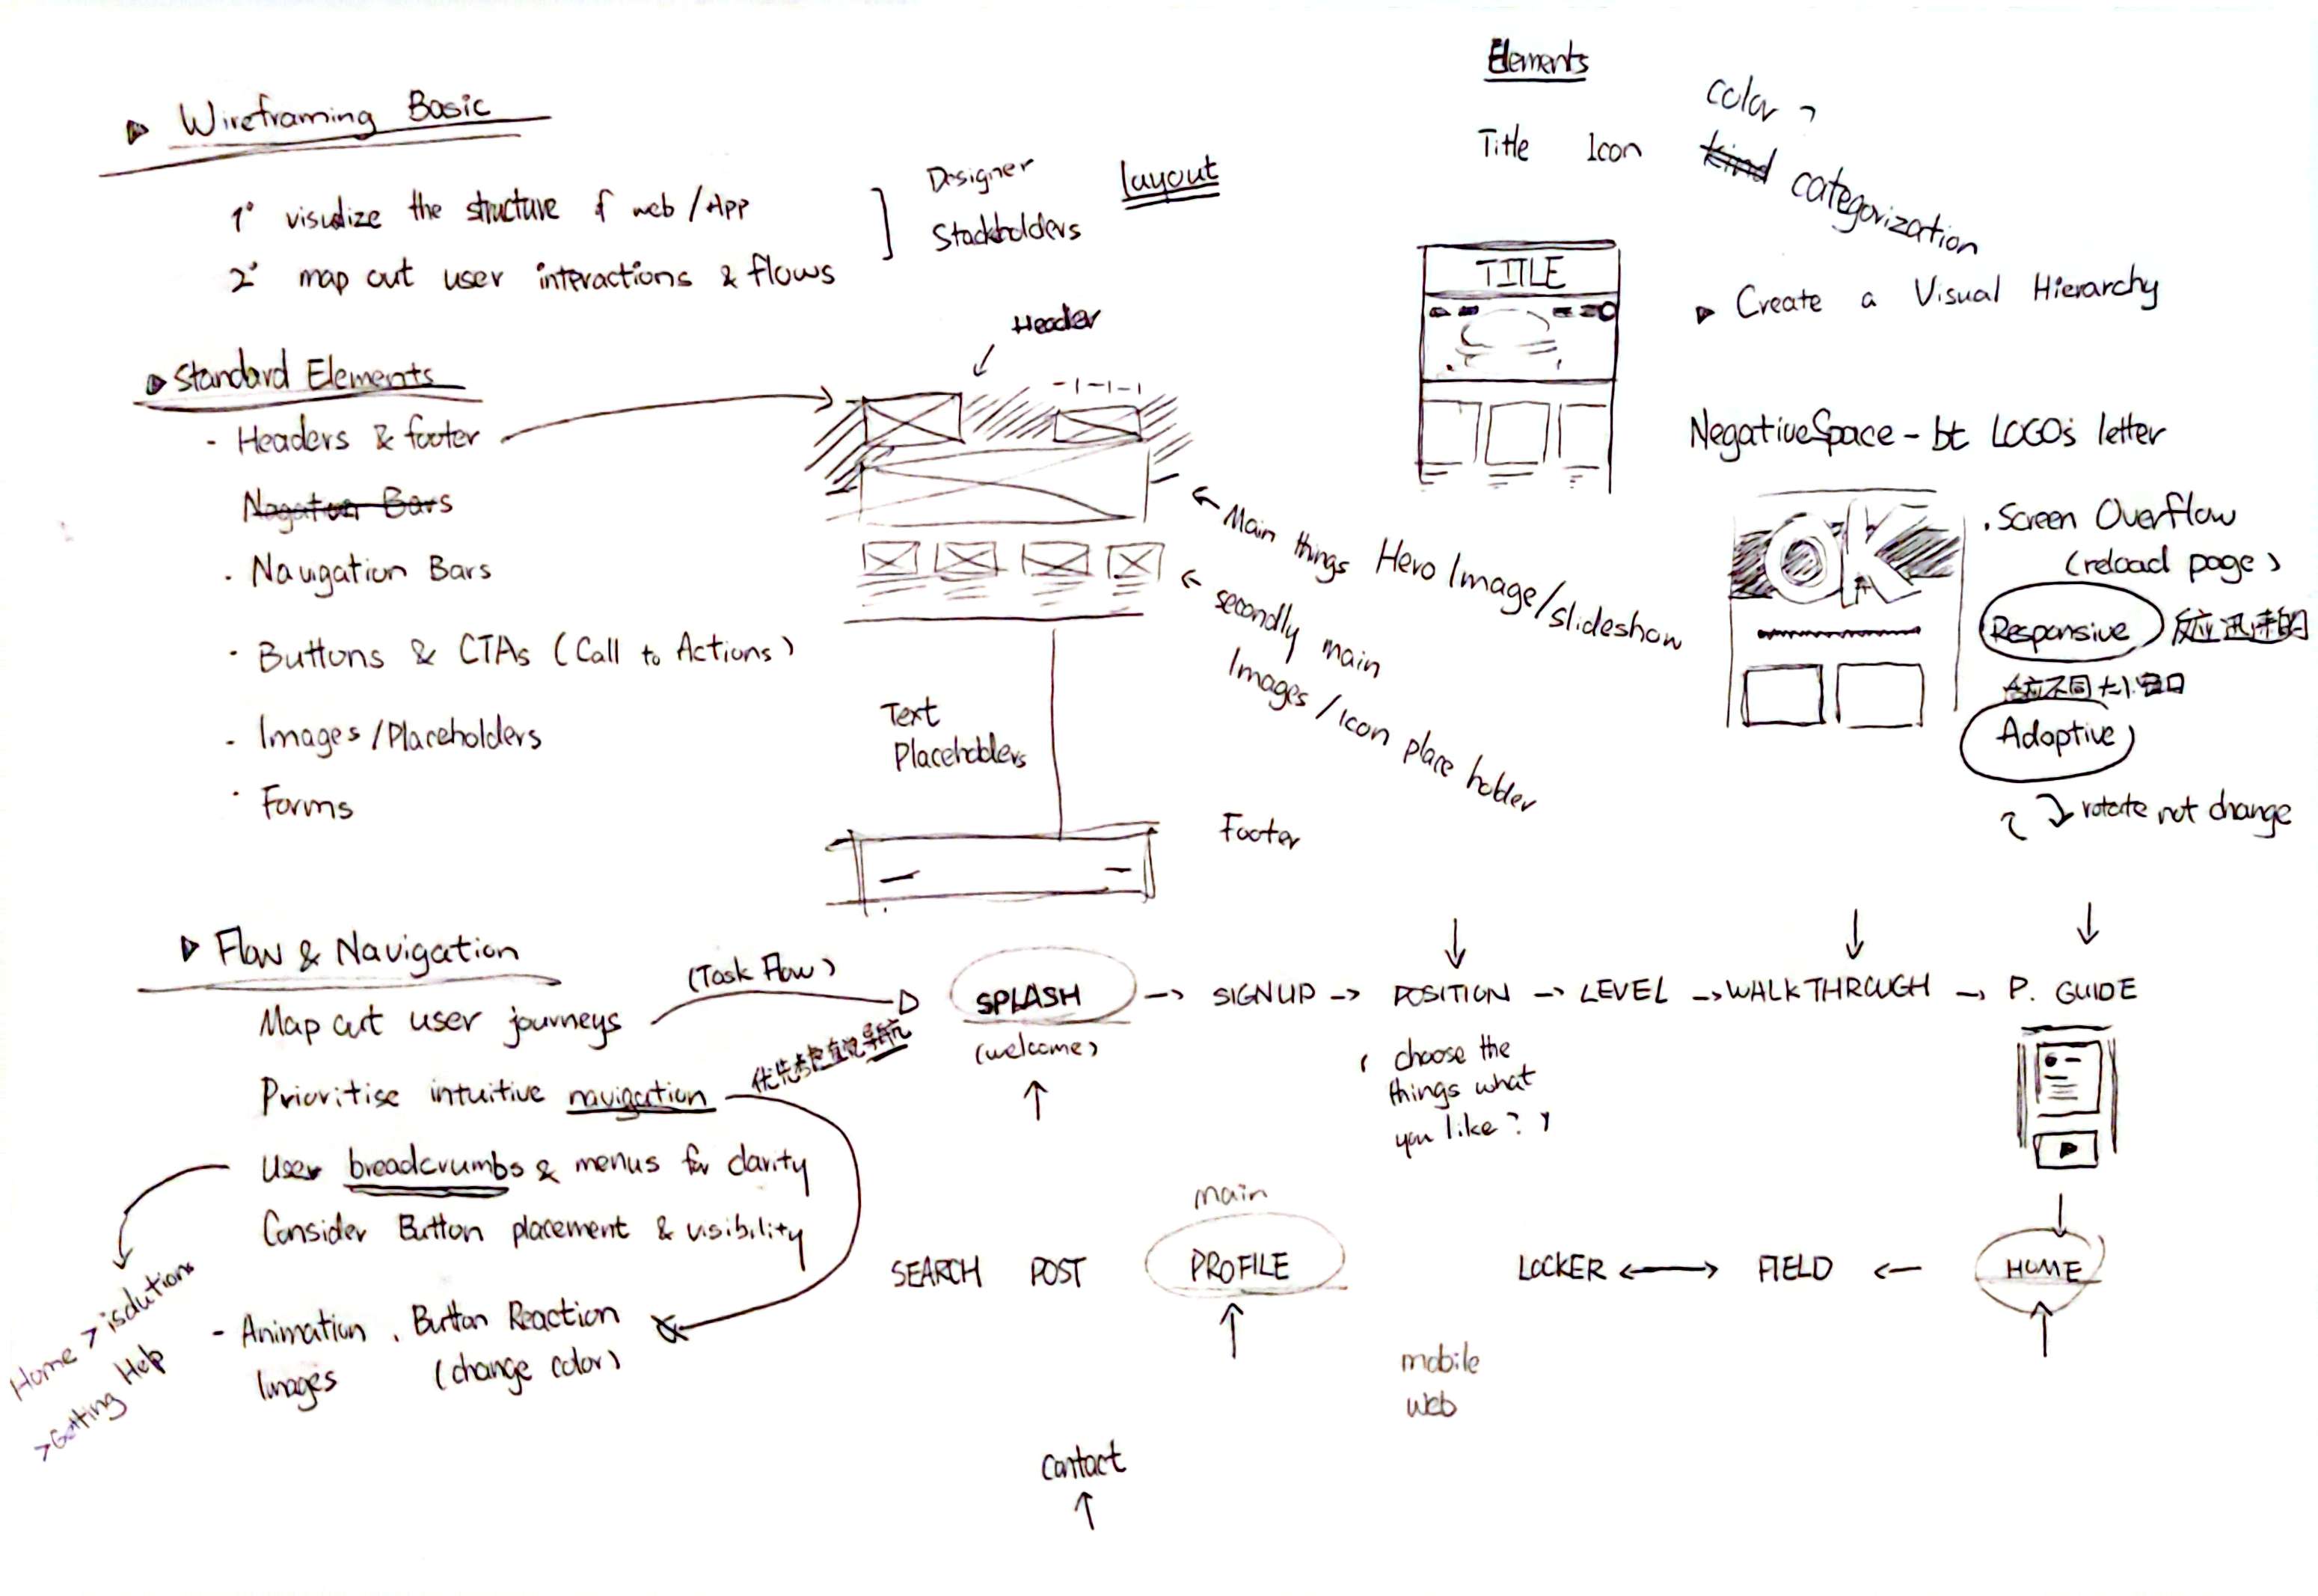 Wireframing Basic
1° visualize the structure of web/App
2° map out user interactions & flows
Designer
Stackholders
Layout
Standard Elements
- Headers & footer
Nagation Bars
· Navigation Bars
· Buttons & CTAs (Call to Actions)
- Images/Placeholders
· Forms
Header
Main things Hero Image/slideshow
secondly main
Images/Icon place holder
Text
Placeholders
Footer
Elements
Title Icon kind categorization
color ?
TITLE
Create a Visual Hierarchy
Negative Space - bt LOGO's letter
OK
· Screen Overflow
(reload page)
Responsive 反应迅速的
不同大小窗口
Adoptive
rotate not change
Flow & Navigation
Map out user journeys
(Task Flow)
Prioritise intuitive navigation
优先考虑直观导航
User breadcrumbs & menus for clarity
Consider Button placement & visibility
Home > isolutions
> Getting Help
- Animation . Button Reaction
Images (change color)
SPLASH → SIGNUP → POSITION → LEVEL → WALKTHROUGH → P. GUIDE
(welcome)
( choose the
things what
you like? )
main
SEARCH POST PROFILE
LOCKER ↔ FIELD ← HOME
mobile
web
Contact